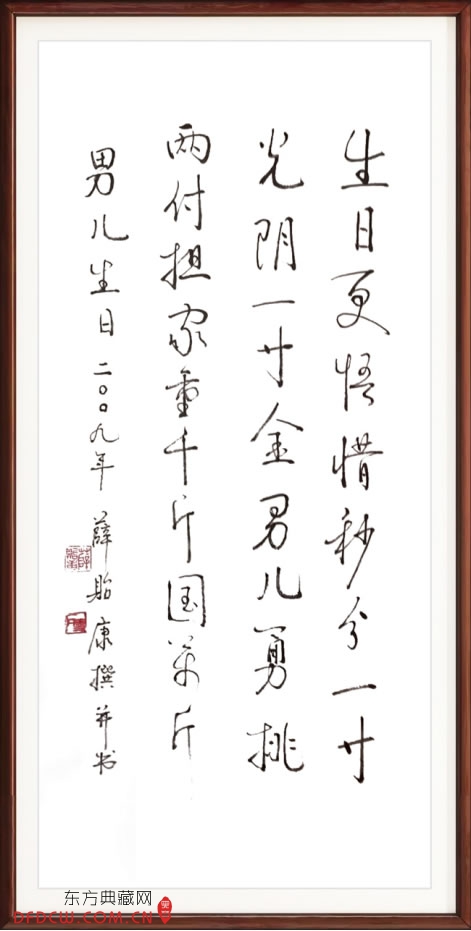 生日更悟惜秒分一寸
光阴一寸金男儿勇挑
两付担家重千斤国万斤
男儿生日二〇〇九年 薛贻康撰并书
东方典藏网
DFDCW.COM.CN